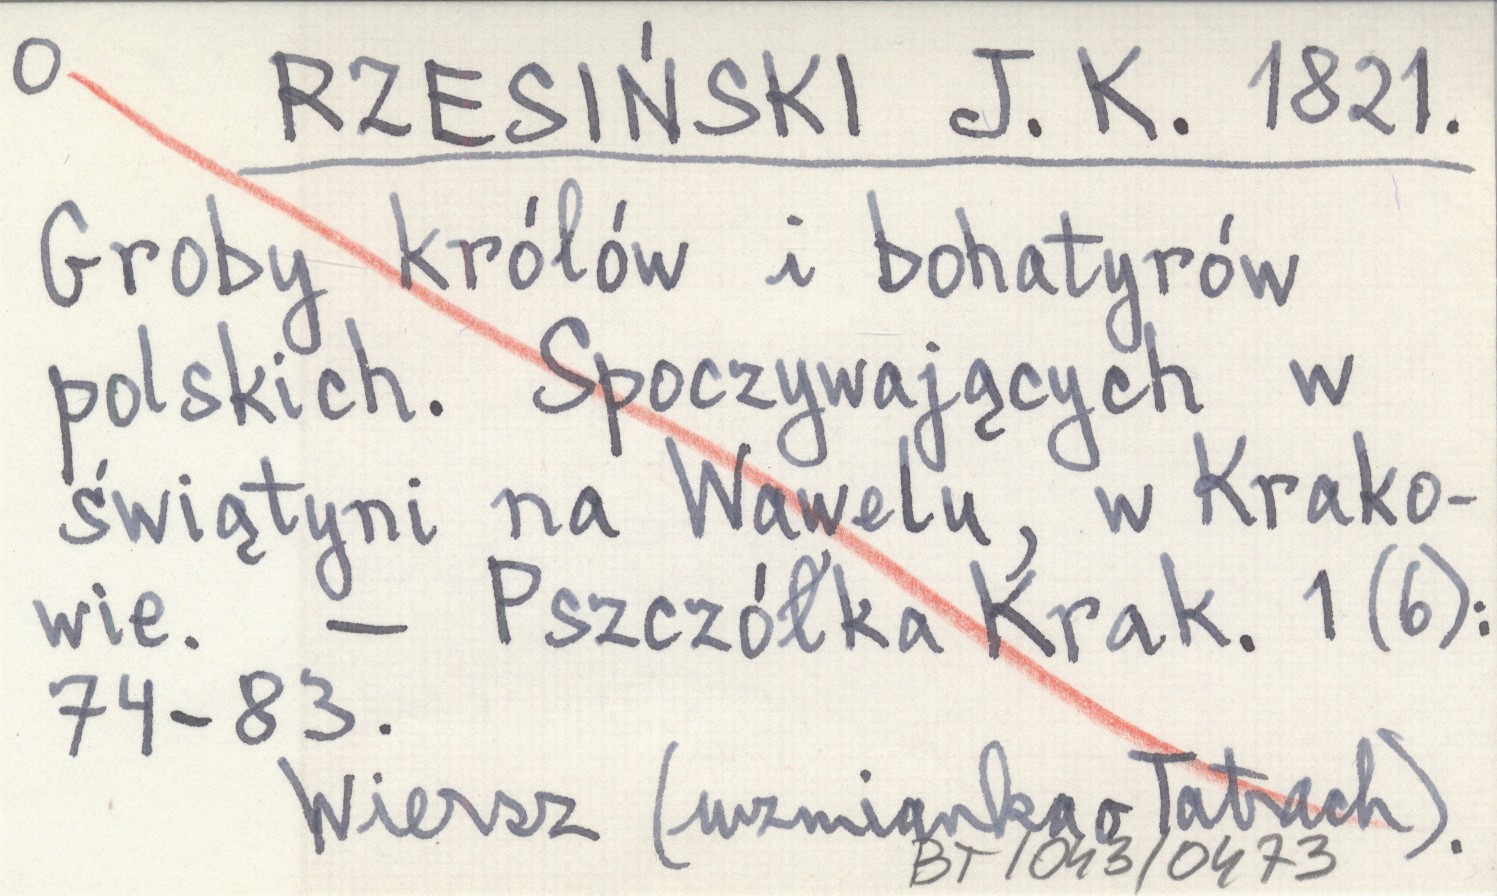 O RZESIŃSKI J. K. 1821.
Groby królów i bohatyrów
polskich. Spoczywających w
świątyni na Wawelu, w Krako-
wie. – Pszczółka Krak. 1(6):
74-83.
Wiersz (wzmianka o Tatrach).
BT/043/0473